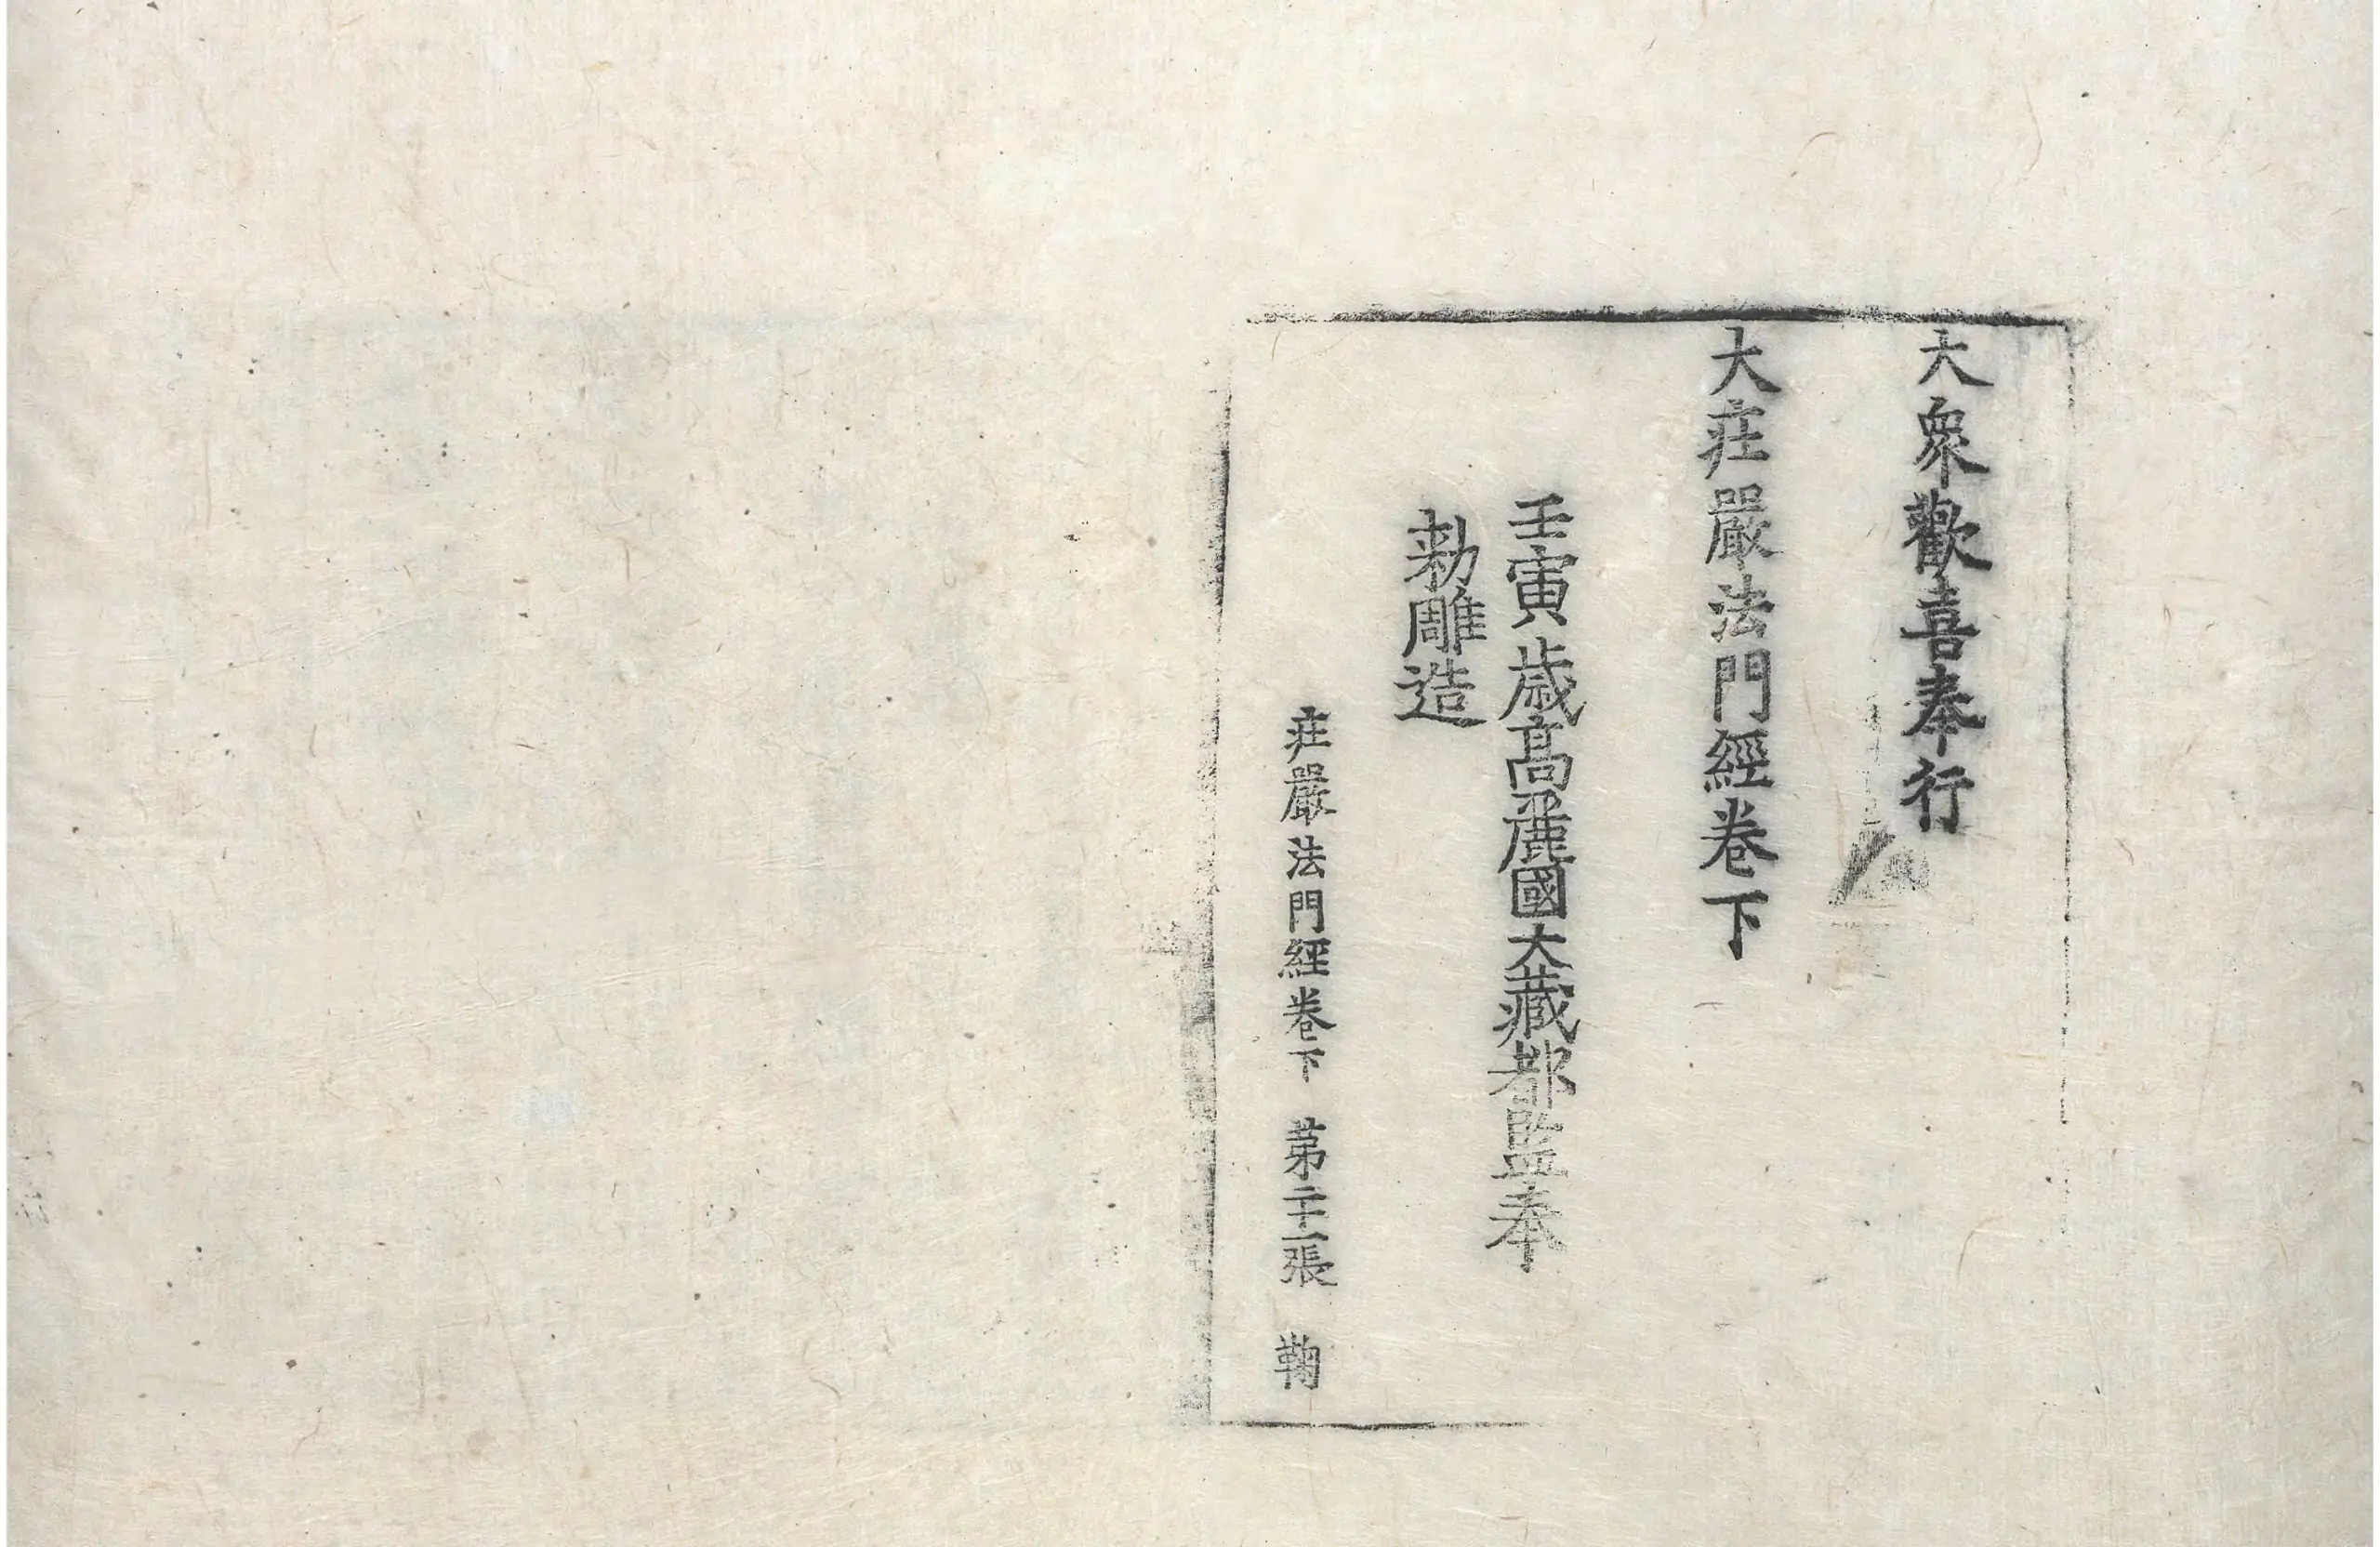 大衆歡喜奉行
大莊嚴法門經卷下
壬寅歲高麗國大藏都監奉
勅雕造
莊嚴法門經卷下 第二十一張 鞠